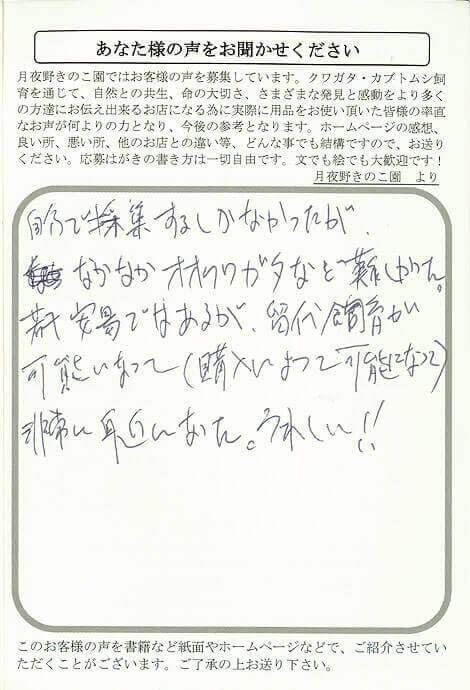 あなた様の声をお聞かせください
月夜野きのこ園ではお客様の声を募集しています。クワガタ・カブトムシ飼
育を通じて、自然との共生、命の大切さ、さまざまな発見と感動をより多く
の方達にお伝え出来るお店になる為に実際に用品をお使い頂いた皆様の率直
なお声が何よりの力となり、今後の参考となります。ホームページの感想、
良い所、悪い所、他のお店との違い等、どんな事でも結構ですので、お送り
ください。応募はがきの書き方は一切自由です。文でも絵でも大歓迎です！
月夜野きのこ園　より
自分で採集するしかなかったが、
なかなかオオクワガタなど難しかった。
若干安易ではあるが、累代飼育が
可能になって(購入によって可能になって)
非常に身近になった。うれしい!!
このお客様の声を書籍など紙面やホームページなどで、ご紹介させてい
ただくことがございます。ご了承の上お送り下さい。